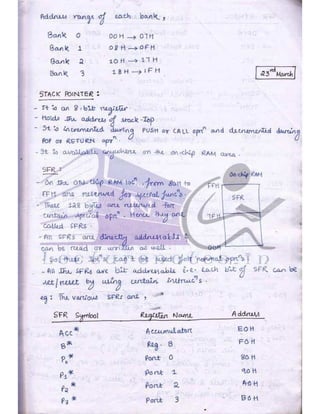 Address range of each bank,
Bank 0 00H → 07H
Bank 1 08H → 0FH
Bank 2 10H → 17H
Bank 3 18H → 1FH
23rd March
STACK POINTER :
- It is an 8-bit register.
- Holds the address of stack-top
- It is incremented during PUSH or CALL oprn and decremented during
POP or RETURN oprn.
- It is available anywhere on the on-chip RAM area.
SFR :
On chip RAM
- On the on-chip RAM locn from 80H to
FFH
FFH are reserved for special funcns.
SFR
These 128 bytes are reserved for
certain special oprn. Hence they are
7FH
called SFRs.
- All SFRs are directly addressable &
can be read or written as well.
00H
be used for normal oprns
- All the SFRs are bit addressable i.e. Each bit of SFR can be
set/reset by using certain instrucns.
eg : The various SFRs are,
SFR Symbol Register Name Address
Acc* Accumulator E0H
B* Reg. B F0H
P0* Port 0 80H
P1* Port 1 90H
P2* Port 2 A0H
P3* Port 3 B0H